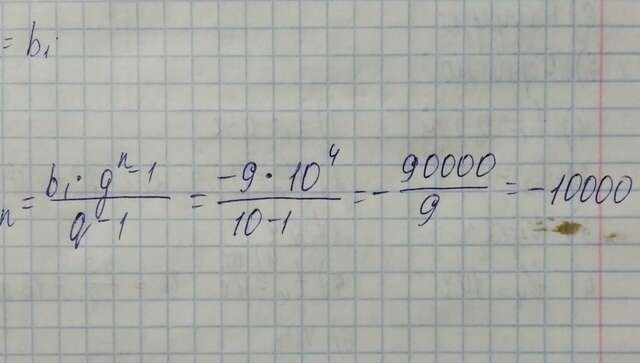 = b₁
n = (b₁ · q^(n-1))/(q-1) = (-9 · 10⁴)/(10-1) = -90000/9 = -10000